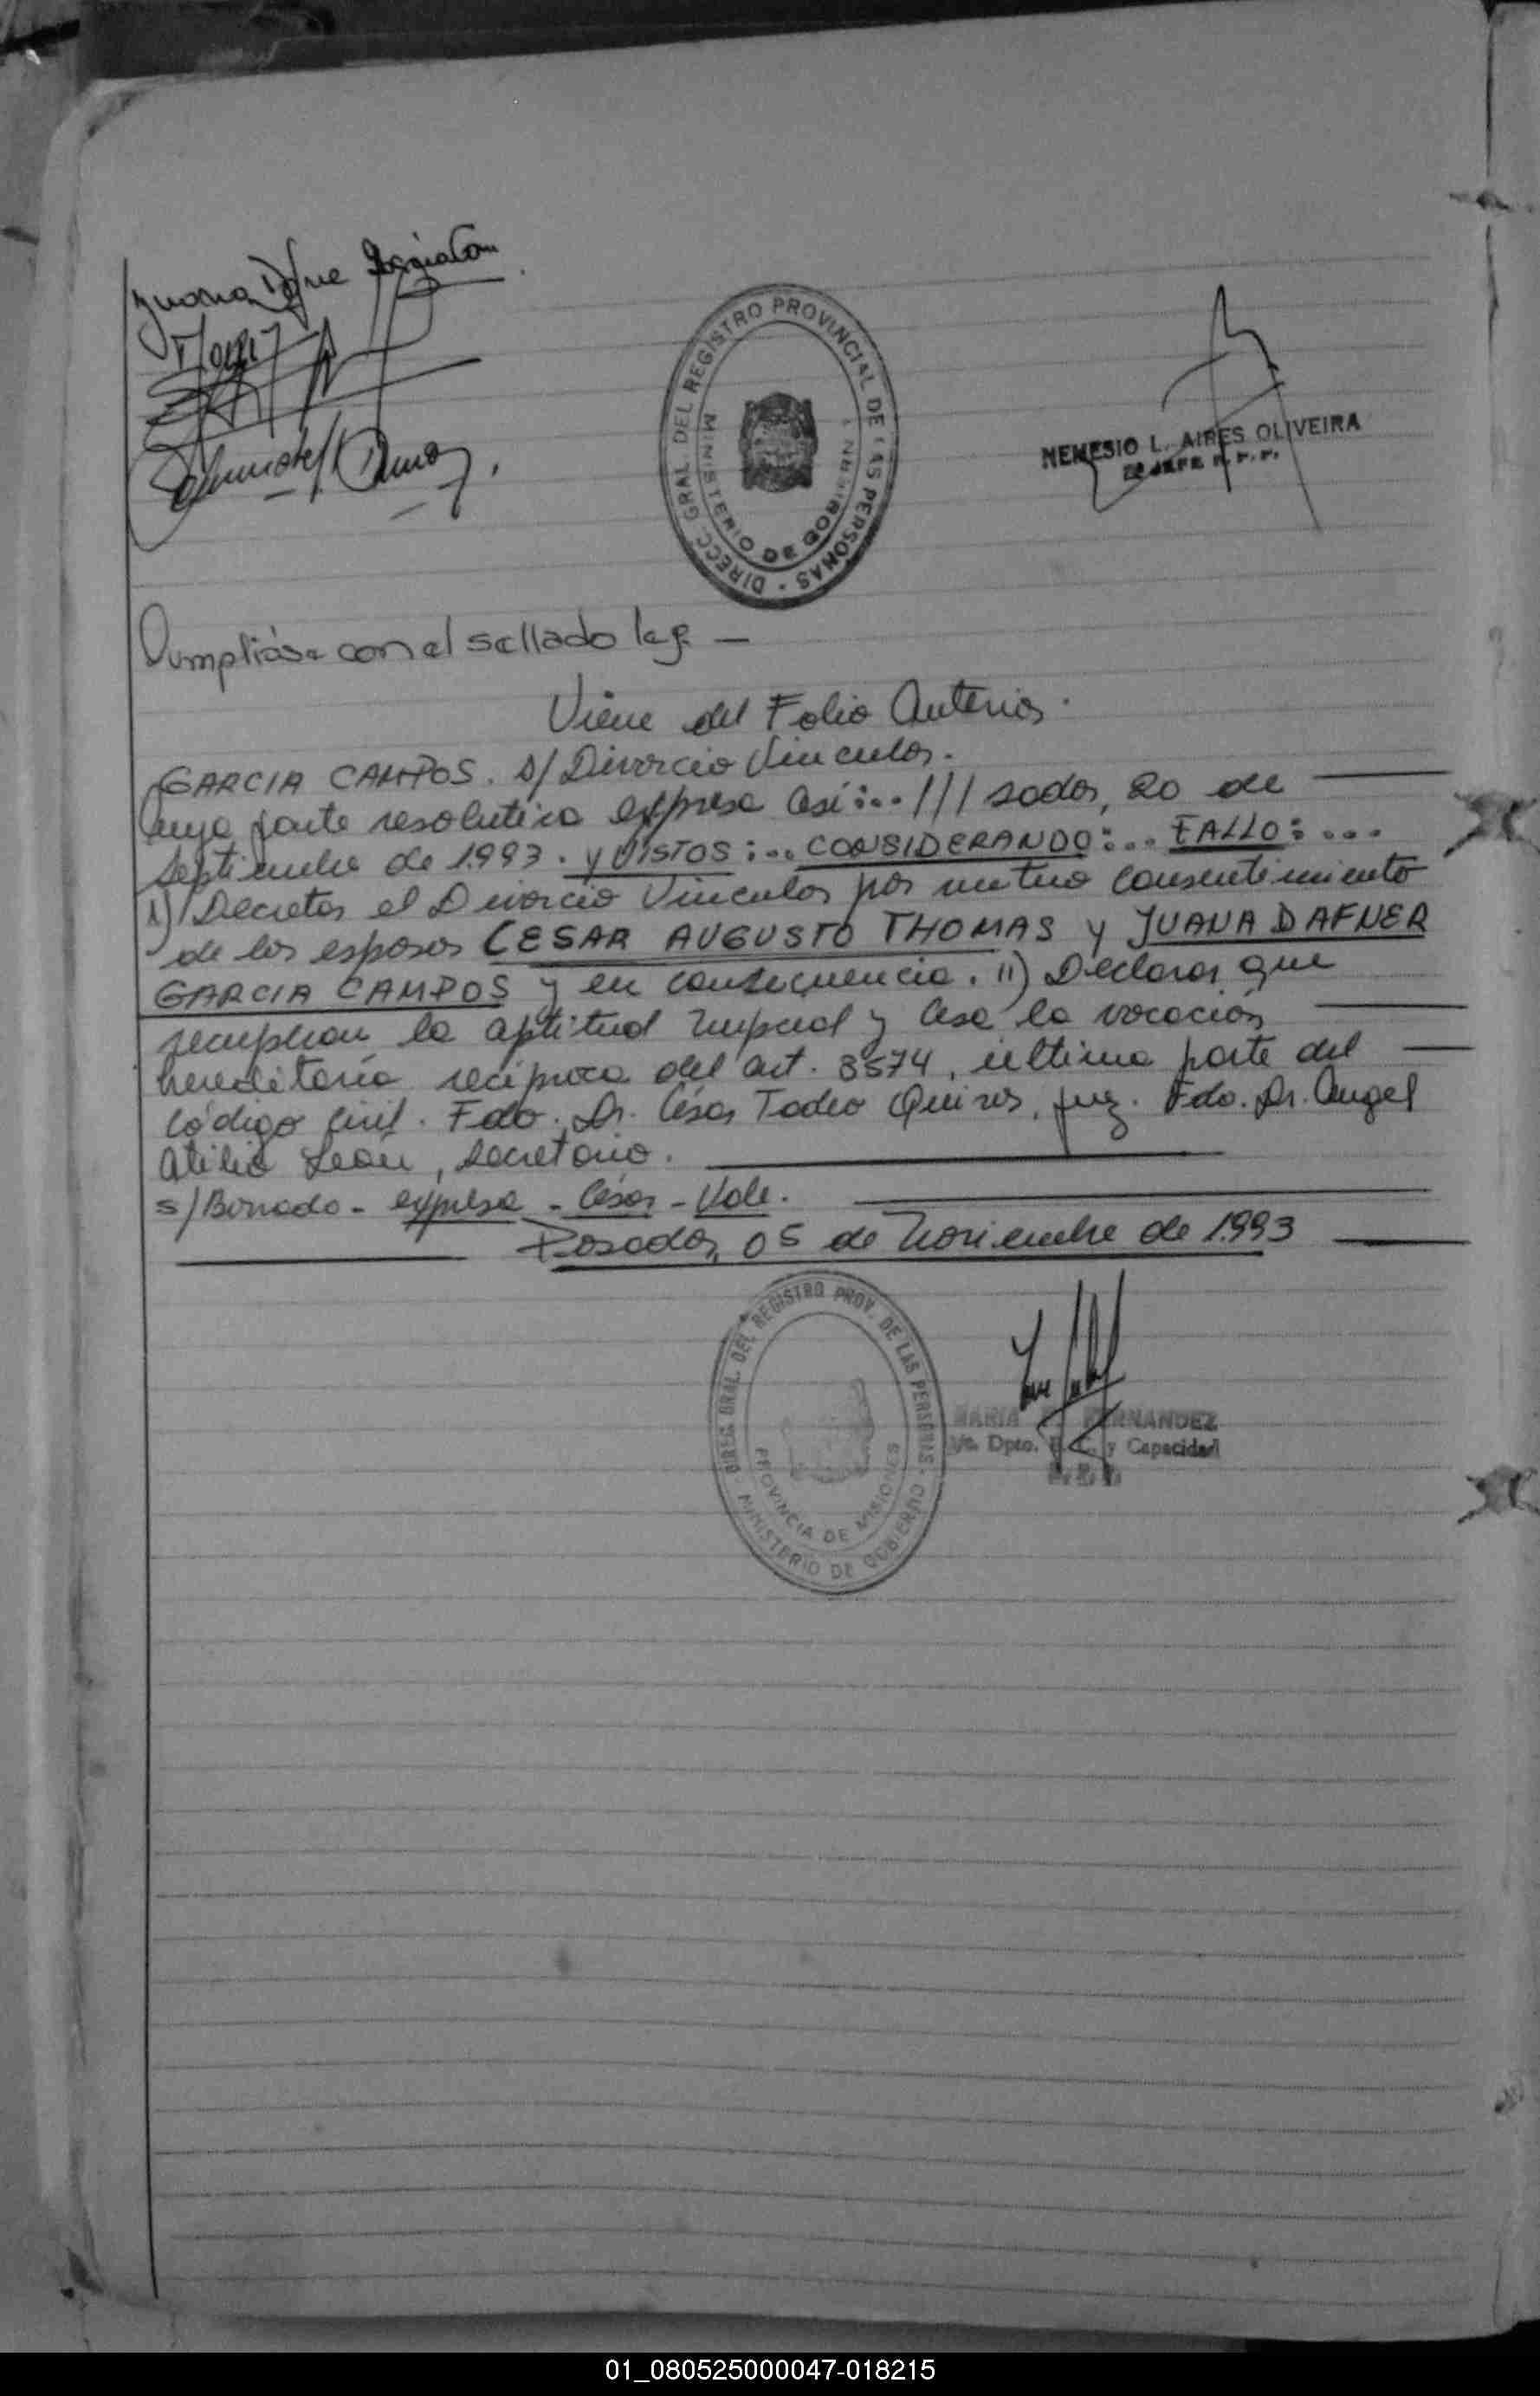 Juana
DIRECC. GRAL. DEL REGISTRO PROVINCIAL DE LAS PERSONAS -
MINISTERIO DE GOBIERNO
NEMESIO L. AIRES OLIVEIRA
Cumplióse con el sellado
Viene del Folio Anterior.
GARCIA CAMPOS. S/ Divorcio Vincular.
cuya parte resolutiva expresa así:... /// sadas, 20 de
Septiembre de 1.993. Y VISTOS:... CONSIDERANDO:... FALLO:...
I) Decretar el Divorcio Vincular por mutuo consentimiento
de los esposos CESAR AUGUSTO THOMAS y JUANA DAFNER
GARCIA CAMPOS y en consecuencia. II) Declarar que
recuperan la aptitud nupcial y cesa la vocación
hereditaria recíproca del art. 3574, última parte del
Código Civil. Fdo. Dr. César Tadeo Quiros, juez. Fdo. Dr. Angel
Atilio León, Secretario.
s/Borrado - expresa - César - Vale.
Posadas, 05 de Noviembre de 1.993
DIREC. GRAL. DEL REGISTRO PROV. DE LAS PERSONAS -
MINISTERIO DE GOBIERNO
PROVINCIA DE MISIONES
MARIA FERNANDEZ
Dpto. y Capacidad
01_080525000047-018215